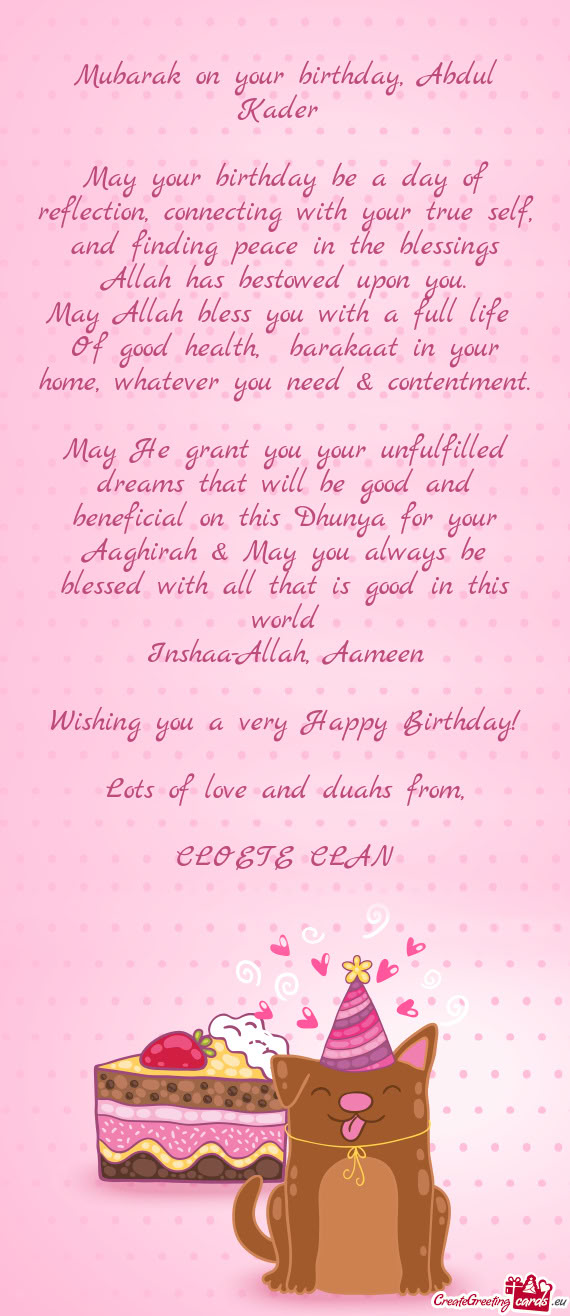 Mubarak on your birthday, Abdul
Kader
May your birthday be a day of
reflection, connecting with your true self,
and finding peace in the blessings
Allah has bestowed upon you.
May Allah bless you with a full life
Of good health, barakaat in your
home, whatever you need & contentment.
May He grant you your unfulfilled
dreams that will be good and
beneficial on this Dhunya for your
Aaghirah & May you always be
blessed with all that is good in this
world
Inshaa-Allah, Aameen
Wishing you a very Happy Birthday!
Lots of love and duahs from,
CLOETE CLAN
CreateGreetingcards.eu